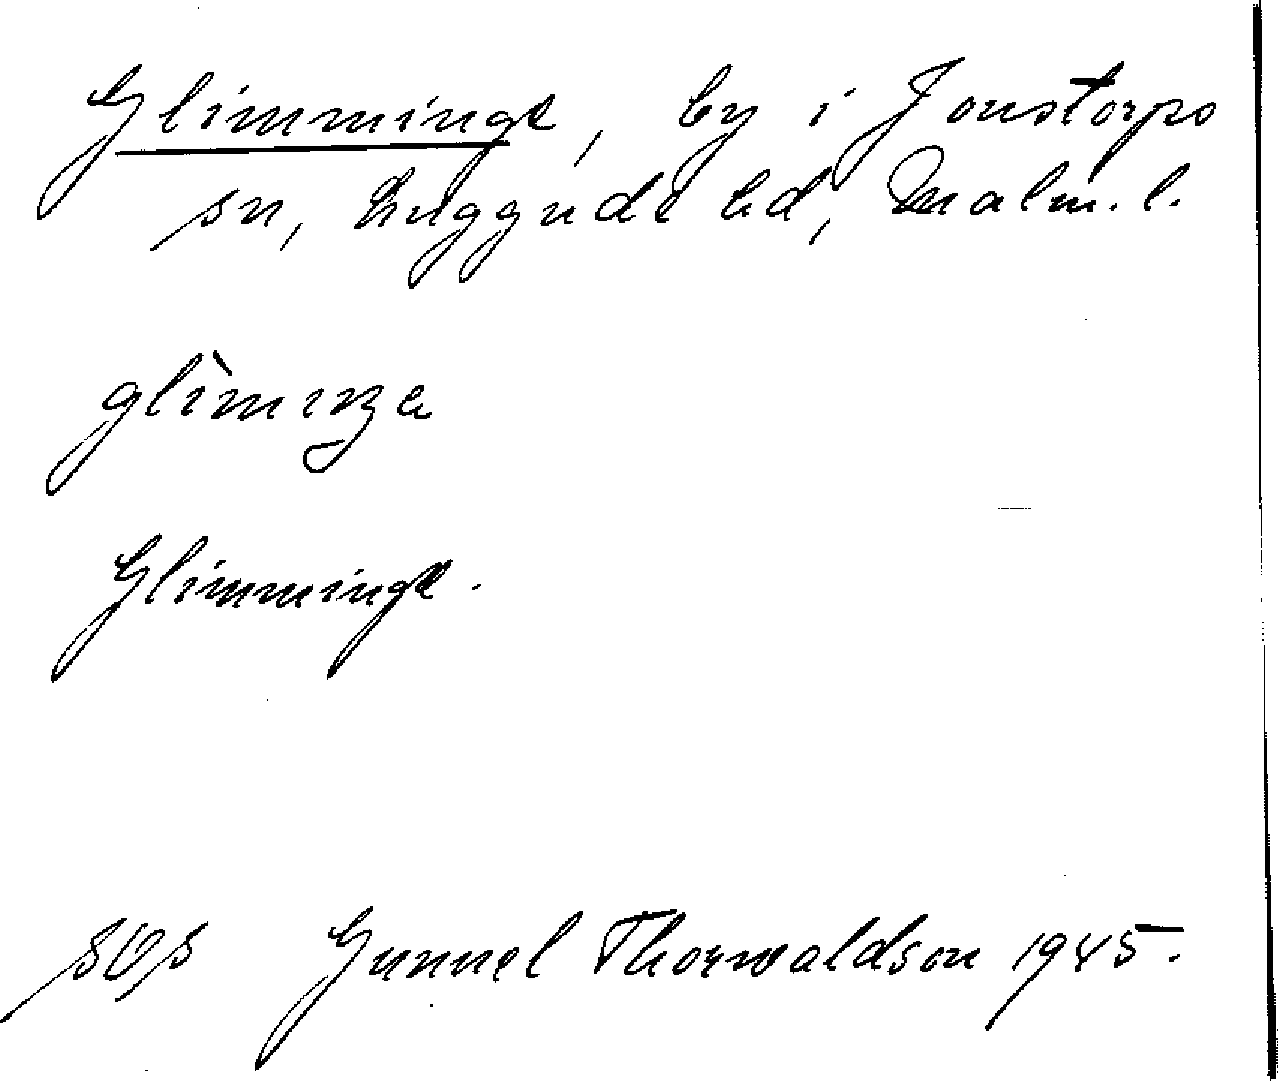 Glimminge, by i Jonstorps
sn, Luggude hd, Malm. l.
Glimminge.
Gunnel Thorwaldson 1945.